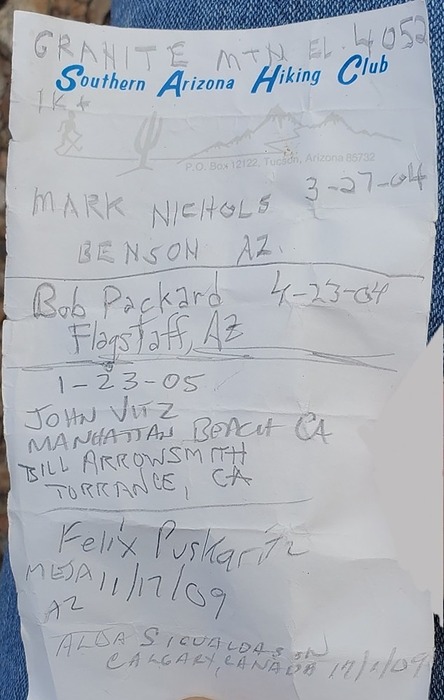 GRANITE MTN EL. 4052
Southern Arizona Hiking Club
1K+
P.O. Box 12122, Tucson, Arizona 85732
MARK NICHOLS 3-27-04
BENSON AZ.
Bob Packard 4-23-04
Flagstaff, AZ
1-23-05
JOHN VITZ
MANHATTAN BEACH CA
BILL ARROWSMITH
TORRANCE, CA
Felix Puskaritz
MESA 11/17/09
AZ
ALDA SIGURDASON
CALGARY, CANADA